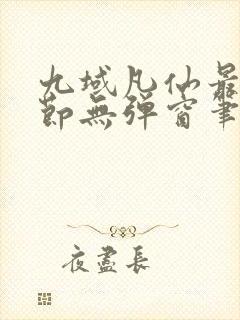 九域凡仙最
節無彈窗筆
夜盡長